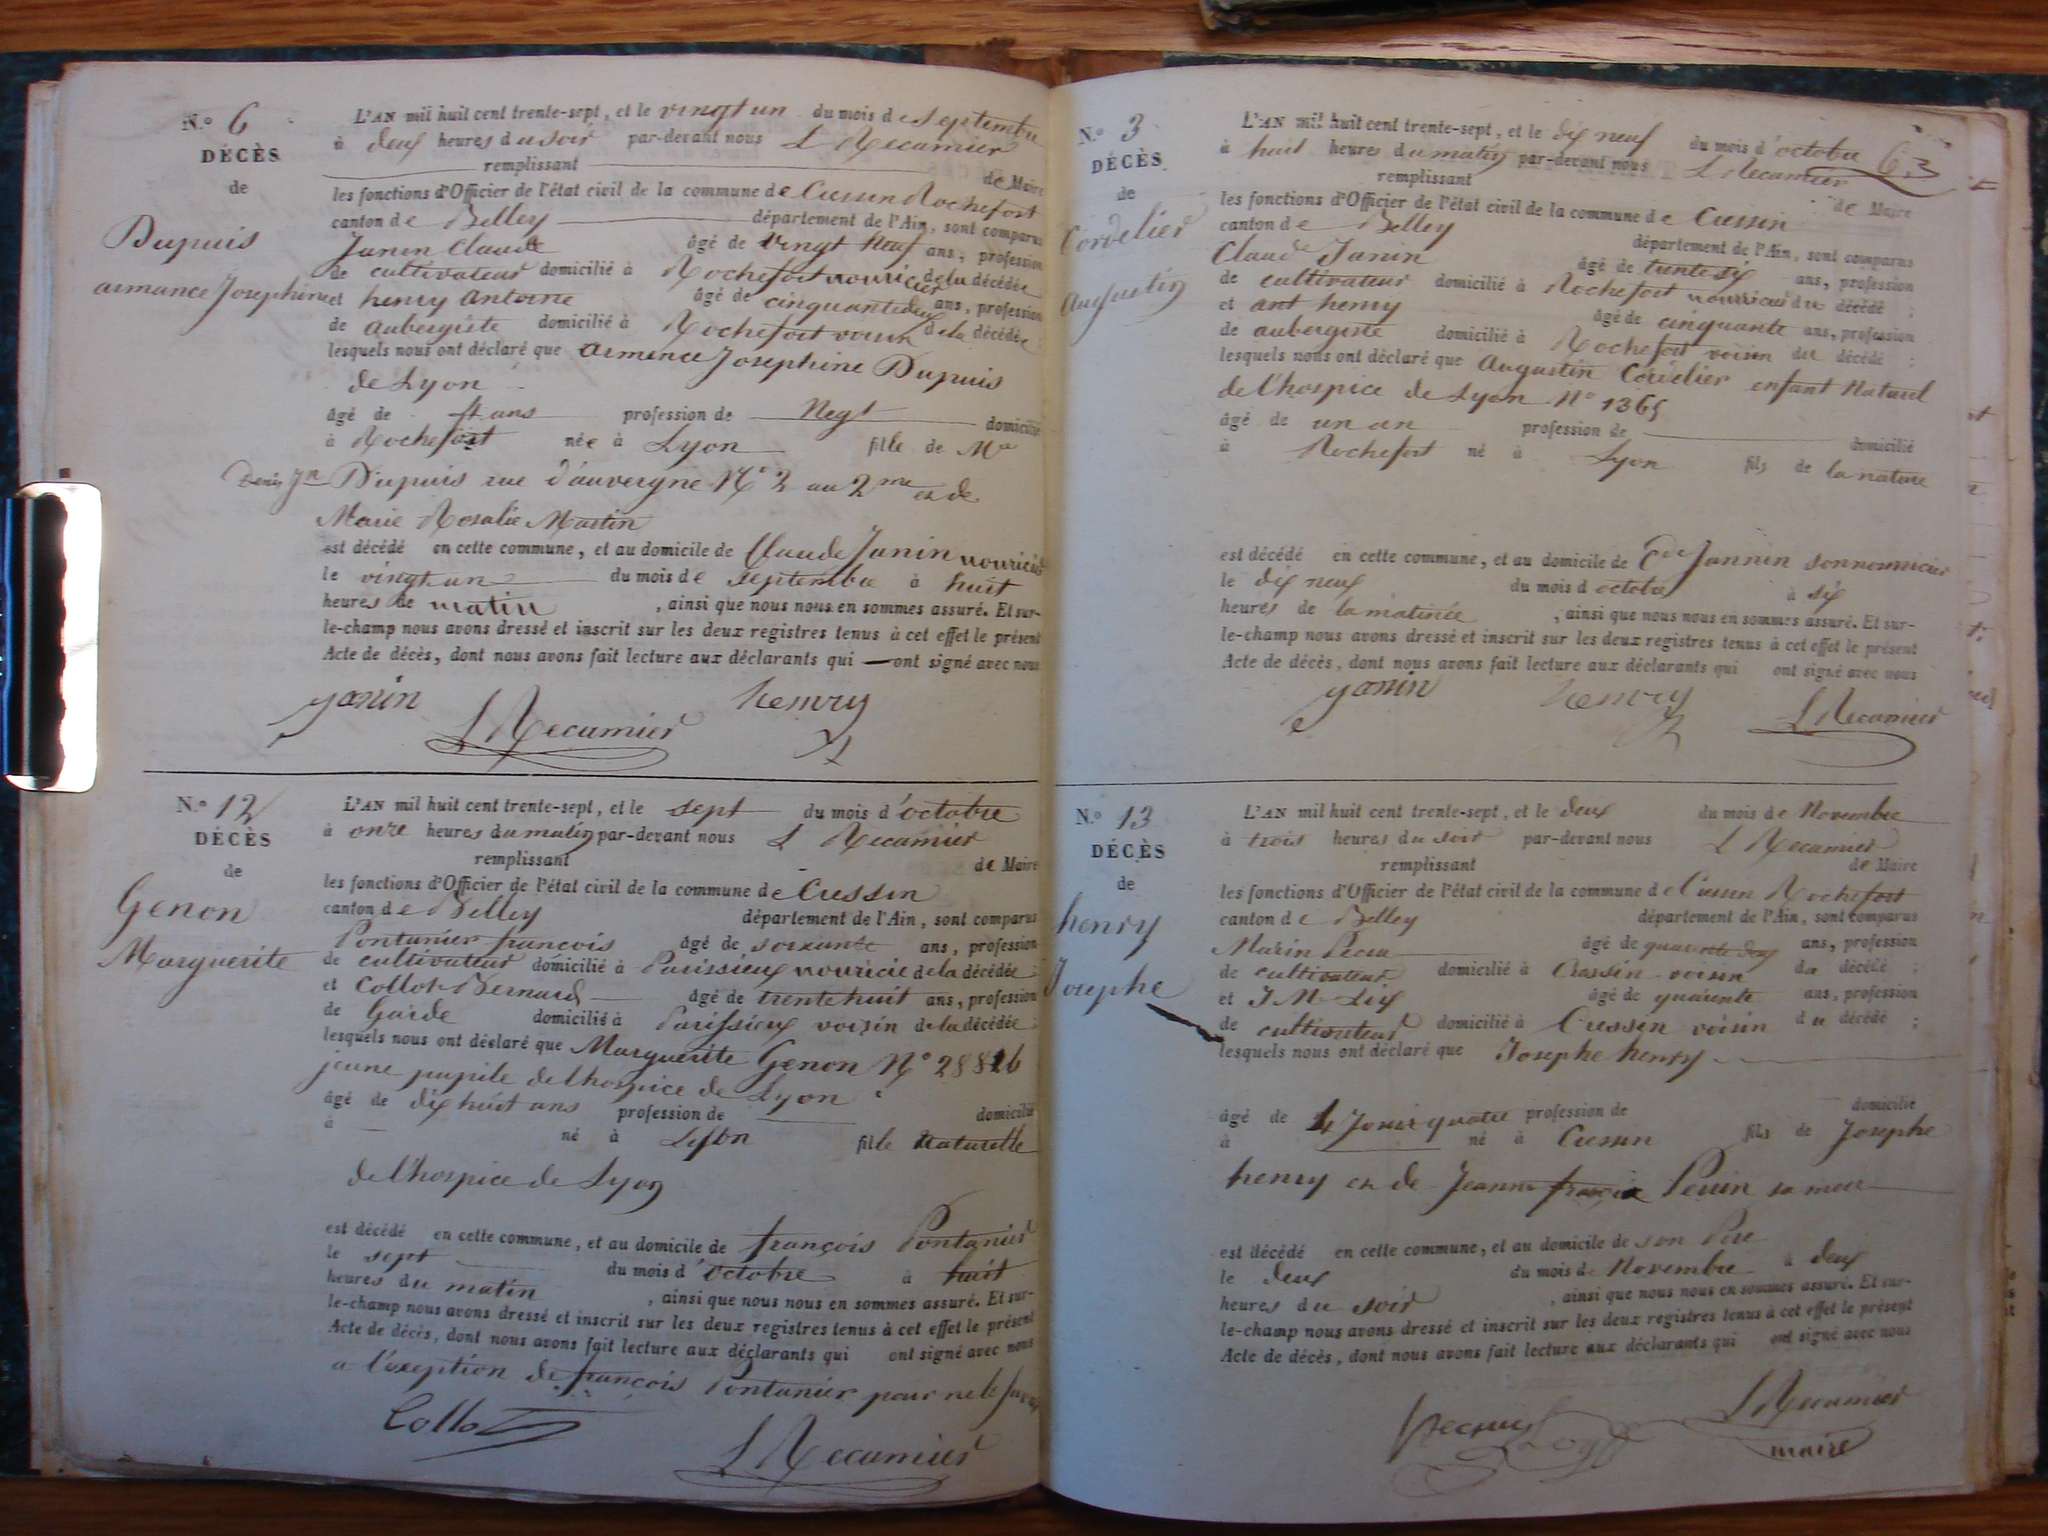 N.° 6
DÉCÈS
de
Dupuis
armance Josephine
L'AN mil huit cent trente-sept, et le vingt un du mois de septembre
à deux heures du soir par-devant nous L Recamier
remplissant de Maire
les fonctions d'Officier de l'état civil de la commune de Cussin Rochefort
canton de Belley département de l'Ain, sont comparus
Janin Claude âgé de vingt neuf ans, profession
de cultivateur domicilié à Rochefort nourricier de la décédée
et henry Antoine âgé de cinquante deux ans, profession
de Aubergiste domicilié à Rochefort voisin de la décédée
lesquels nous ont déclaré que armence Josephine Dupuis
de Lyon
âgé de 4 ans profession de Negt domicilié
à Rochefort née à Lyon fille de Mr
Denis Jn Dupuis rue d'auvergne N° 2 au 2me et de
Marie Rosalie Martin
est décédé en cette commune, et au domicile de Claude Janin nouricié
le vingt un du mois de septembre à huit
heures de matin , ainsi que nous nous en sommes assuré. Et sur-
le-champ nous avons dressé et inscrit sur les deux registres tenus à cet effet le présent
Acte de décès, dont nous avons fait lecture aux déclarants qui ont signé avec nous
yanin henry
L Recamier
N.° 12
DÉCÈS
de
Genon
Marguerite
L'AN mil huit cent trente-sept, et le sept du mois d'octobre
à onze heures du matin par-devant nous L Recamier
remplissant de Maire
les fonctions d'Officier de l'état civil de la commune de Cressin
canton de Belley département de l'Ain, sont comparus
Pontanier françois âgé de soixante ans, profession
de cultivateur domicilié à Parissieux nouricié de la décédée
et Collot Bernard âgé de trente huit ans, profession
de Garde domicilié à Parissieux voisin de la décédée
lesquels nous ont déclaré que Marguerite Genon N° 28816
jeune pupile de l'hospice de Lyon
âgé de dix huit ans profession de domicilié
à né à Lyon fille Naturelle
de l'hospice de Lyon
est décédé en cette commune, et au domicile de françois Pontanier
le sept du mois d'octobre à huit
heures du matin , ainsi que nous nous en sommes assuré. Et sur-
le-champ nous avons dressé et inscrit sur les deux registres tenus à cet effet le présent
Acte de décès, dont nous avons fait lecture aux déclarants qui ont signé avec nous
a l'exeption de françois Pontanier pour ne le
Collot
L Recamier
63
N.° 3
DÉCÈS
de
Cordelier
Augustin
L'AN mil huit cent trente-sept, et le dix neuf du mois d'octobre
à huit heures du matin par-devant nous L Recamier
remplissant de Maire
les fonctions d'Officier de l'état civil de la commune de Cressin
canton de Belley département de l'Ain, sont comparus
Claude Janin âgé de trente six ans, profession
de cultivateur domicilié à Rochefort nourricié du décédé ;
et ant henry âgé de cinquante ans, profession
de aubergiste domicilié à Rochefort voisin du décédé ;
lesquels nous ont déclaré que Augustin Cordelier enfant Naturel
de l'hospice de Lyon N° 1365
âgé de un an profession de domicilié
à Rochefort né à Lyon fils de la nature
est décédé en cette commune, et au domicile de Cde Jannin son nourricier
le dix neuf du mois d octobre à six
heures de la matinée , ainsi que nous nous en sommes assuré. Et sur-
le-champ nous avons dressé et inscrit sur les deux registres tenus à cet effet le présent
Acte de décès, dont nous avons fait lecture aux déclarants qui ont signé avec nous
yanin henry L Recamier
N.° 13
DÉCÈS
de
henry
Josephe
L'AN mil huit cent trente-sept, et le deux du mois de Novembre
à trois heures du soir par-devant nous L Recamier
remplissant de Maire
les fonctions d'Officier de l'état civil de la commune de Cressin Rochefort
canton de Belley département de l'Ain, sont comparus
Marin âgé de quarente deux ans, profession
de cultivateur domicilié à Cressin voisin du décédé ;
et J M âgé de quarente ans, profession
de cultivateur domicilié à Cressin voisin du décédé ;
lesquels nous ont déclaré que Josephe henry
âgé de 4 Jours quatre profession de domicilié
à né à Cressin fils de Josephe
henry et de Jeanne françoise Perrin sa mere
est décédé en cette commune, et au domicile de son Père
le deux du mois de Novembre à deux
heures du soir , ainsi que nous nous en sommes assuré. Et sur-
le-champ nous avons dressé et inscrit sur les deux registres tenus à cet effet le présent
Acte de décès, dont nous avons fait lecture aux déclarants qui ont signé avec nous
L Recamier
maire